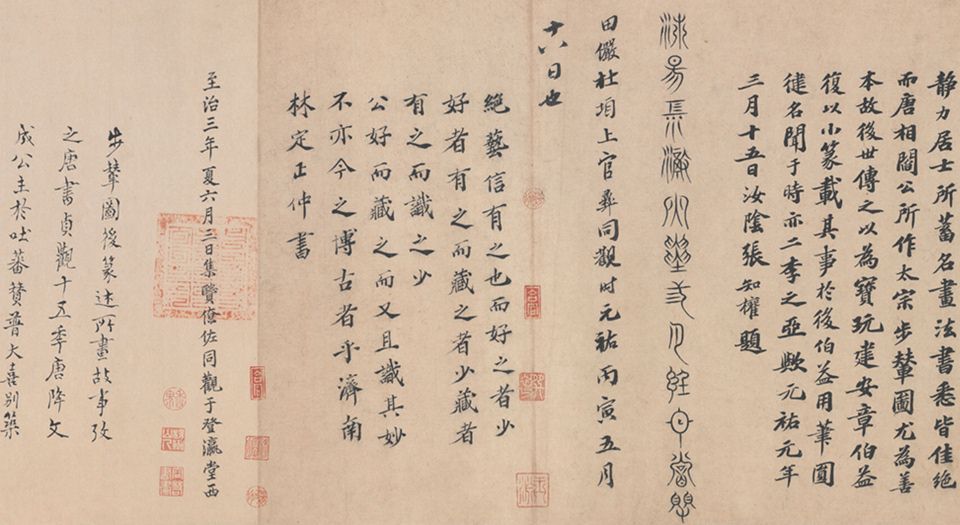 静力居士所蓄名畫法書悉皆佳絶
而唐相閻公所作太宗步輦圖尤為善
本故後世傳之以為寶玩建安章伯益
復以小篆載其事於後伯益用筆圓
健名聞于時亦二李之亞歟元祐元年
三月十五日汝陰張知權題
田儼杜垍上官彝同觀时元祐丙寅五月
十八日也
絕藝信有之也而好之者少
好者有之而藏之者少藏者
有之而識之少
公好而藏之而又且識其妙
不亦今之博古者乎濟南
林定正仲書
至治三年夏六月三日集贒僚佐同觀于登瀛堂西
步輦圖後篆述所畫故事攷
之唐書貞觀十五季唐降文
成公主於吐蕃贊普大喜别築